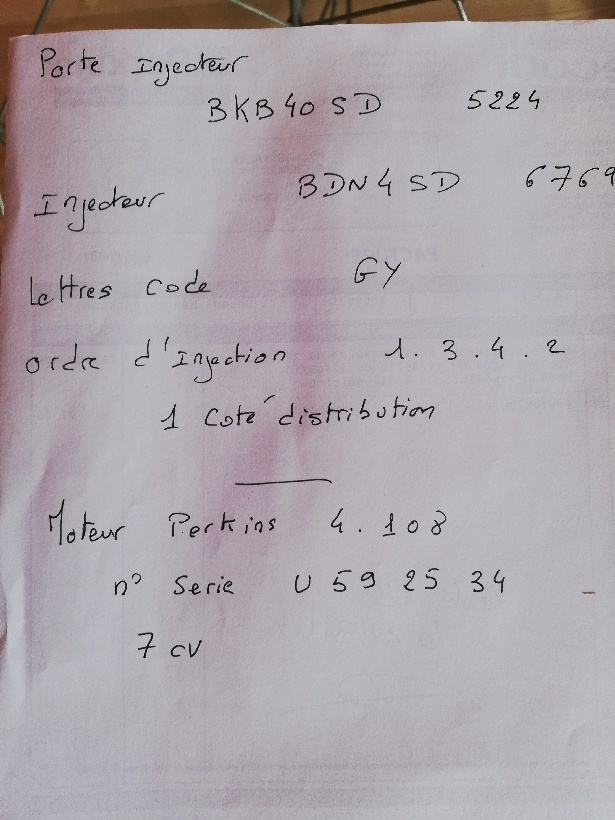 Porte Injecteur
BKB 40 SD 5224
Injecteur BDN 4 SD 6769
Lettres code GY
ordre d'Injection 1. 3. 4. 2
1 Coté distribution
Moteur Perkins 4. 108
n° Serie U 59 25 34
7 cv